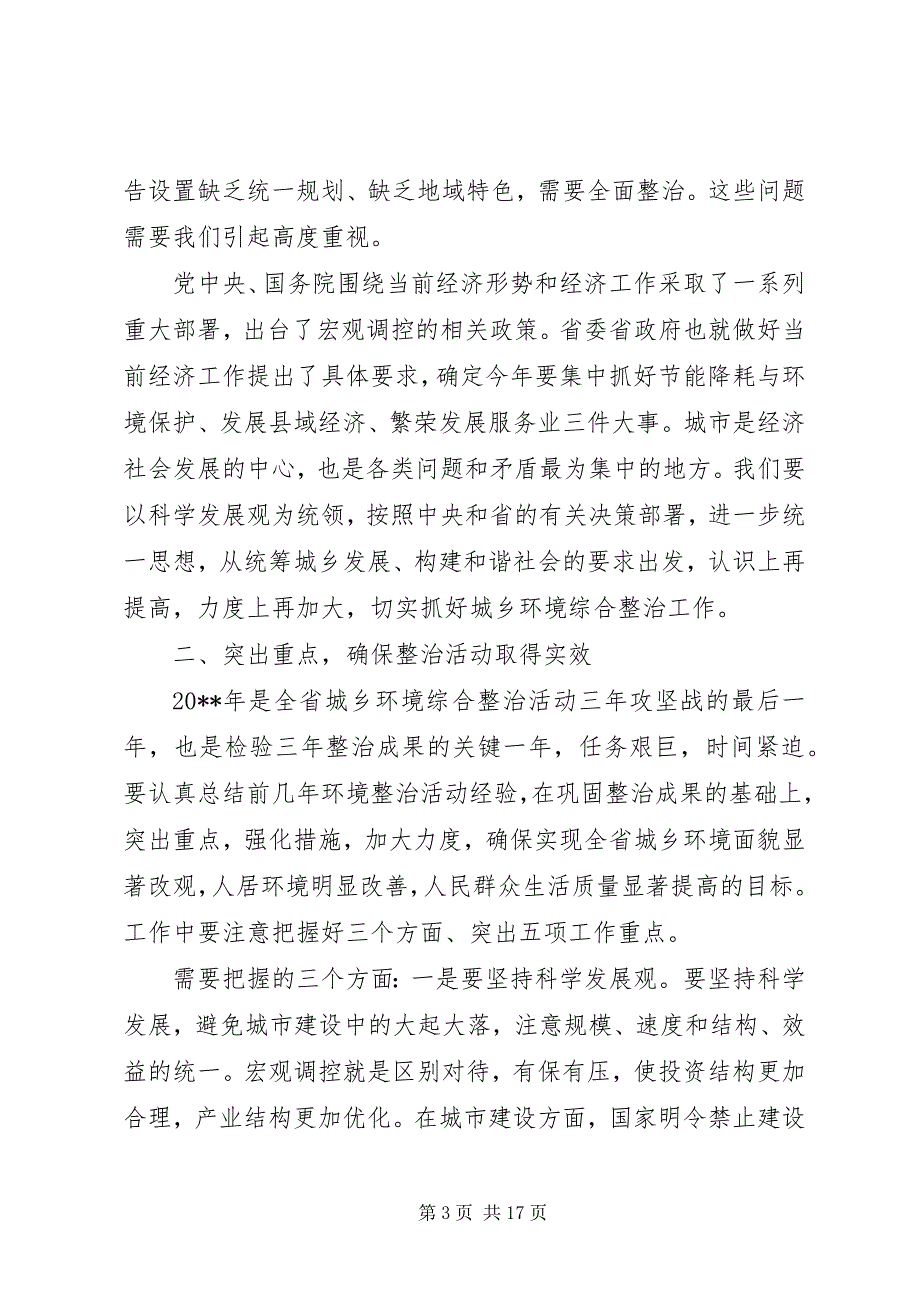 告设置缺乏统一规划、缺乏地域特色，需要全面整治。这些问题
需要我们引起高度重视。
党中央、国务院围绕当前经济形势和经济工作采取了一系列
重大部署，出台了宏观调控的相关政策。省委省政府也就做好当
前经济工作提出了具体要求，确定今年要集中抓好节能降耗与环
境保护、发展县域经济、繁荣发展服务业三件大事。城市是经济
社会发展的中心，也是各类问题和矛盾最为集中的地方。我们要
以科学发展观为统领，按照中央和省的有关决策部署，进一步统
一思想，从统筹城乡发展、构建和谐社会的要求出发，认识上再
提高，力度上再加大，切实抓好城乡环境综合整治工作。
二、突出重点，确保整治活动取得实效
20**年是全省城乡环境综合整治活动三年攻坚战的最后一
年，也是检验三年整治成果的关键一年，任务艰巨，时间紧迫。
要认真总结前几年环境整治活动经验，在巩固整治成果的基础上，
突出重点，强化措施，加大力度，确保实现全省城乡环境面貌显
著改观，人居环境明显改善，人民群众生活质量显著提高的目标。
工作中要注意把握好三个方面、突出五项工作重点。
需要把握的三个方面：一是要坚持科学发展观。要坚持科学
发展，避免城市建设中的大起大落，注意规模、速度和结构、效
益的统一。宏观调控就是区别对待，有保有压，使投资结构更加
合理，产业结构更加优化。在城市建设方面，国家明令禁止建设
第 3 页 共 17 页